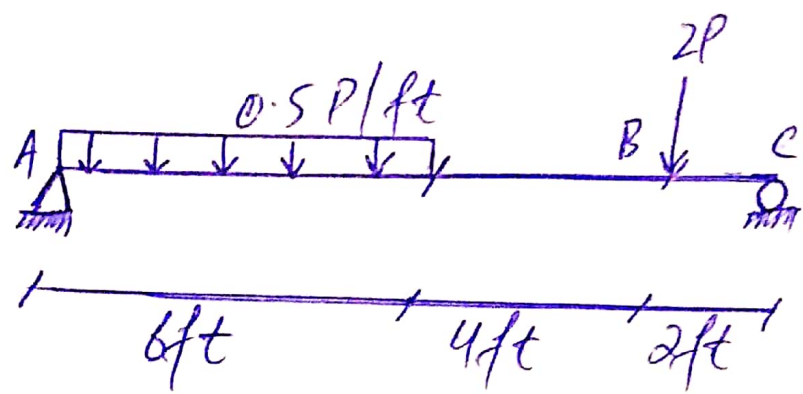 2P
0.5 P/ft
A
B
C
6ft
4ft
2ft